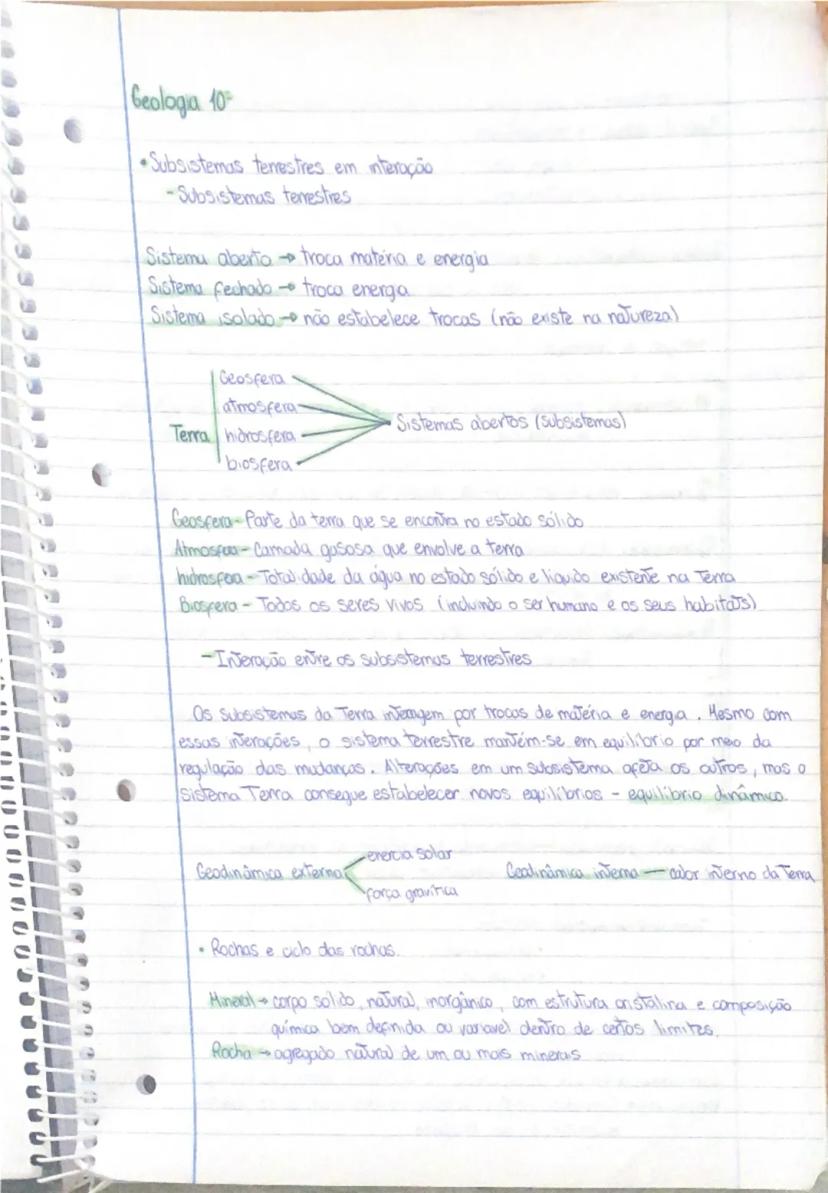 Geologia 10º
• Subsistemas terrestres em interação
- Subsistemas terrestres
Sistema aberto → troca matéria e energia
Sistema fechado → troca energa
Sistema isolado → não estabelece trocas (não existe na natureza)
Geosfera
atmosfera
Terra hidrosfera Sistemas abertos (subsistemas)
biosfera
Geosfera - Parte da terra que se encontra no estado sólido
Atmosfera - Camada gasosa que envolve a terra
hidrosfera - Totalidade da água no estado sólido e líquido existente na Terra
Biosfera - Todos os seres vivos (incluindo o ser humano e os seus habitats)
- Interação entre os subsistemas terrestres
Os subsistemas da Terra interagem por trocas de matéria e energia. Mesmo com
essas interações, o sistema terrestre mantém-se em equilíbrio por meio da
regulação das mudanças. Alterações em um subsistema afeta os outros, mas o
sistema Terra consegue estabelecer novos equilíbrios - equilíbrio dinâmico.
Geodinâmica externa energia solar Geodinâmica interna — calor interno da Terra
força gravítica
• Rochas e ciclo das rochas.
Mineral → corpo sólido, natural, inorgânico, com estrutura cristalina e composição
química bem definida ou variavel dentro de certos limites.
Rocha → agregado natural de um ou mais minerais